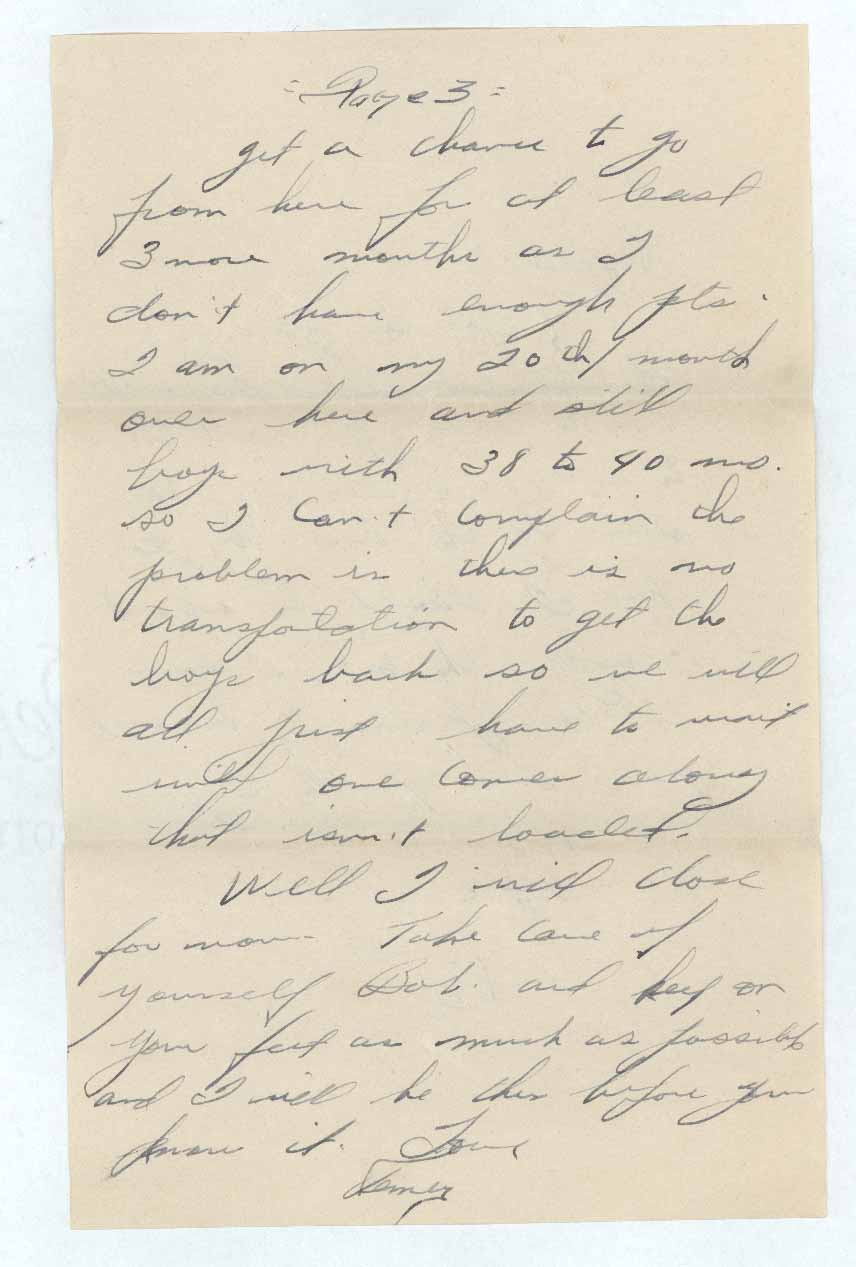 = Page 3 =
get a chance to go
from here for at least
3 more months as I
don't have enough pts.
I am on my 20th month
over here and still
boys with 38 to 40 mo.
so I can't complain the
problem is there is no
transportation to get the
boys back so we will
all just have to wait
until one comes along
that isn't loaded.
Well I will close
for now. Take care of
yourself Bob. and keep on
your feet as much as possible
and I will be there before you
know it. Love